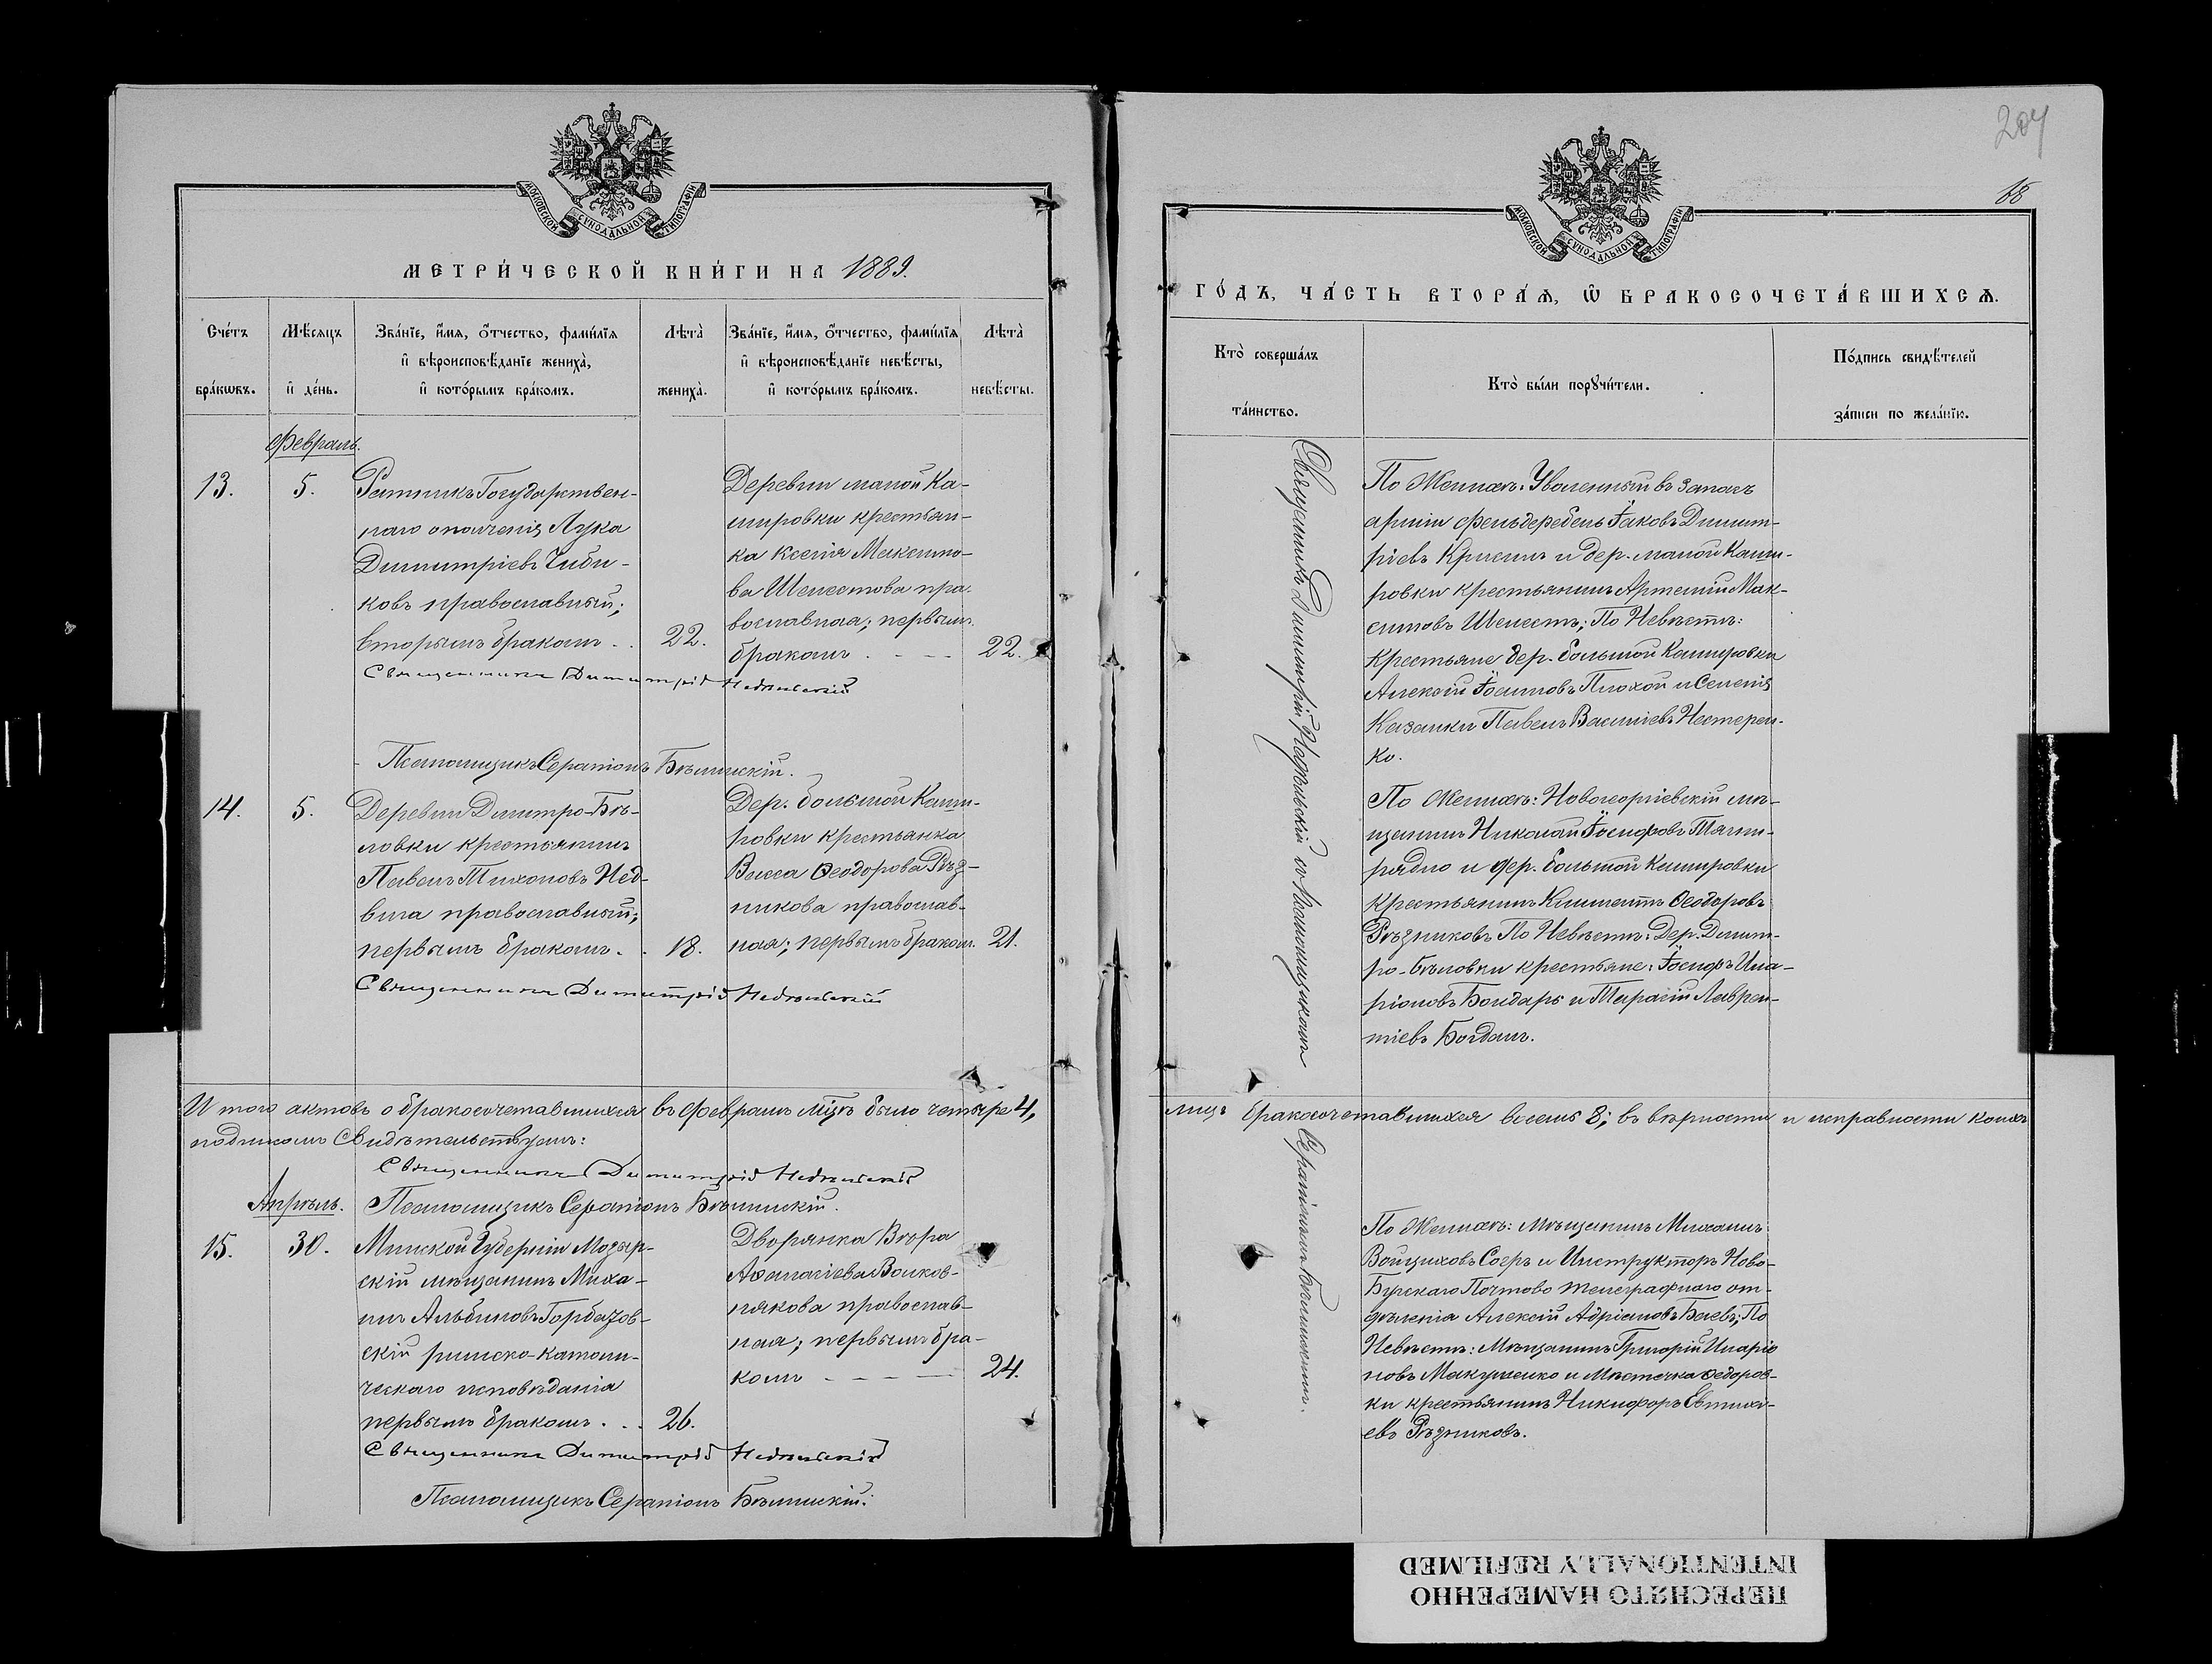 МОСКОВСКОЙ СУНОДАЛЬНОЙ ТИПОГРАФІИ
МЕТРИ́ЧЕСКОЙ КНИ́ГИ НА 1889.
Сче́тъ бра́кѡвъ.
Мѣ́сяцъ и҆ де́нь.
Зва́нїе, и҆́мя, ѻ҆́тчество, фами́лїя и҆ вѣроисповѣ́данїе жениха̀, и҆ кото́рымъ бра́комъ.
Лѣта̀ жениха̀.
Зва́нїе, и҆́мя, ѻ҆́тчество, фами́лїя и҆ вѣроисповѣ́данїе невѣ́сты, и҆ кото́рымъ бра́комъ.
Лѣта̀ невѣ́сты.
Февраль.
13.
5.
Ратникъ Государствен-
наго ополченія Лука
Димитріевъ Чиби-
ковъ православный;
вторымъ бракомъ . .
22.
Деревни малой Ка-
шировки крестьян-
ка Ксенія Максимо-
ва Шелестова пра-
вославная; первымъ
бракомъ . - - -
22.
Священникъ Димитрій Недѣльскій
Псаломщикъ Серапіонъ Бѣлинскій.
14.
5.
Деревни Димитро-Бѣ-
ловки крестьянинъ
Павелъ Тихоновъ Нед-
виа православный;
первымъ бракомъ . .
18.
Дер. большой Каши-
ровки крестьянка
Васса Ѳеодорова Рѣз-
никова православ-
ная; первымъ браком.
21.
Священникъ Димитрій Недѣльскій
Итого актовъ о бракосочетавшихся въ февралѣ м҃цѣ было четыре 4,
подписомъ свидѣтельствуемъ:
Священникъ Димитрій Недѣльскій
Псаломщикъ Серапіонъ Бѣлинскій.
Апрѣль.
15.
30.
Минской Губерніи Мозыр-
скій мѣщанинъ Миха-
илъ Альбиновъ Горбазов-
скій римско-католи-
ческаго исповѣданія
первымъ бракомъ . . .
26.
Дворянка Вѣра
Аѳанасіева Волков-
някова православ-
ная; первымъ бра-
комъ - - - -
24.
Священникъ Димитрій Недѣльскій
Псаломщикъ Серапіонъ Бѣлинскій.
204
18
МОСКОВСКОЙ СУНОДАЛЬНОЙ ТИПОГРАФІИ
ГО́ДЪ, ЧА́СТЬ ВТОРА́Ѧ, Ѽ БРАКОСОЧЕТА́ВШИХСѦ.
Кто̀ соверша́лъ та́инство.
Кто̀ бы́ли порꙋчи́тели.
По́дпись свидѣ́телей за́писи по жела́нїю.
Священникъ Димитрій Недѣльскій съ Псаломщикомъ
Серапіономъ Бѣлинскимъ.
По Женихѣ: Уволенный въ запасъ
арміи фельдфебель Іаковъ Димит-
ріевъ и дер. малой Каши-
ровки крестьянинъ Артемій Мак-
симовъ Шелестъ; По Невѣстѣ:
крестьяне дер. большой Кашировки
Алексій Іосиповъ Плохой и Селенія
Казанки Павелъ Васильевъ Нестерен-
ко.
По Женихѣ: Новогеоргіевскій мѣ-
щанинъ Николай Іосифовъ
и дер. большой Кашировки
крестьянинъ Климентъ Ѳеодоровъ
Рѣзниковъ По Невѣстѣ: Дер. Димит-
ро-Бѣловки крестьяне: Іосифъ Ила-
ріоновъ Бондарь и Тарасій Лаврен-
тіевъ Богданъ.
лицъ бракосочетавшихся восемь 8; въ вѣрности и исправности коихъ
По Женихѣ: Мѣщанинъ Михаилъ
Войциховъ и Инструкторъ Ново-
Бугскаго Почтово телеграфнаго от-
дѣленія Алексій Адріановъ Баевъ; По
Невѣстѣ: Мѣщанинъ Григорій Иларіо
новъ Макушенко и Мѣстечка Ѳедоров-
ки крестьянинъ Никифоръ Евтихі-
евъ Рѣзниковъ.
ПЕРЕСНЯТО НАМЕРЕННО
INTENTIONALLY REFILMED